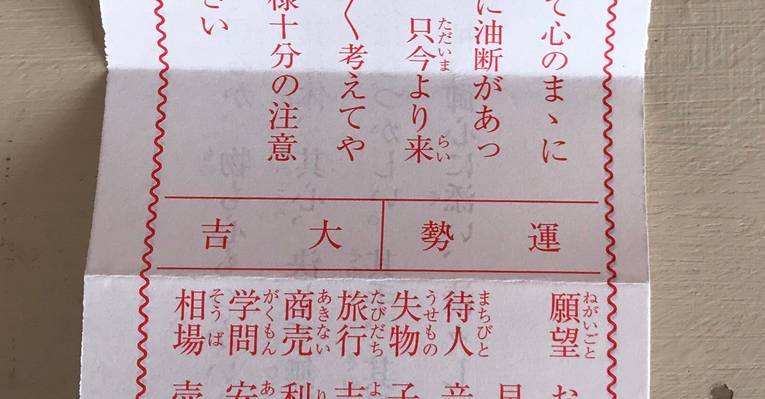 て心のまゝに
に油断があっ
ただいま らい
只今より来
く考えてや
様十分の注意
さい
運勢
大吉
ねがいごと
願望 お
まちびと
待人
うせもの
失物
たびだち
旅行
あきない
商売
がくもん
学問
そうば
相場